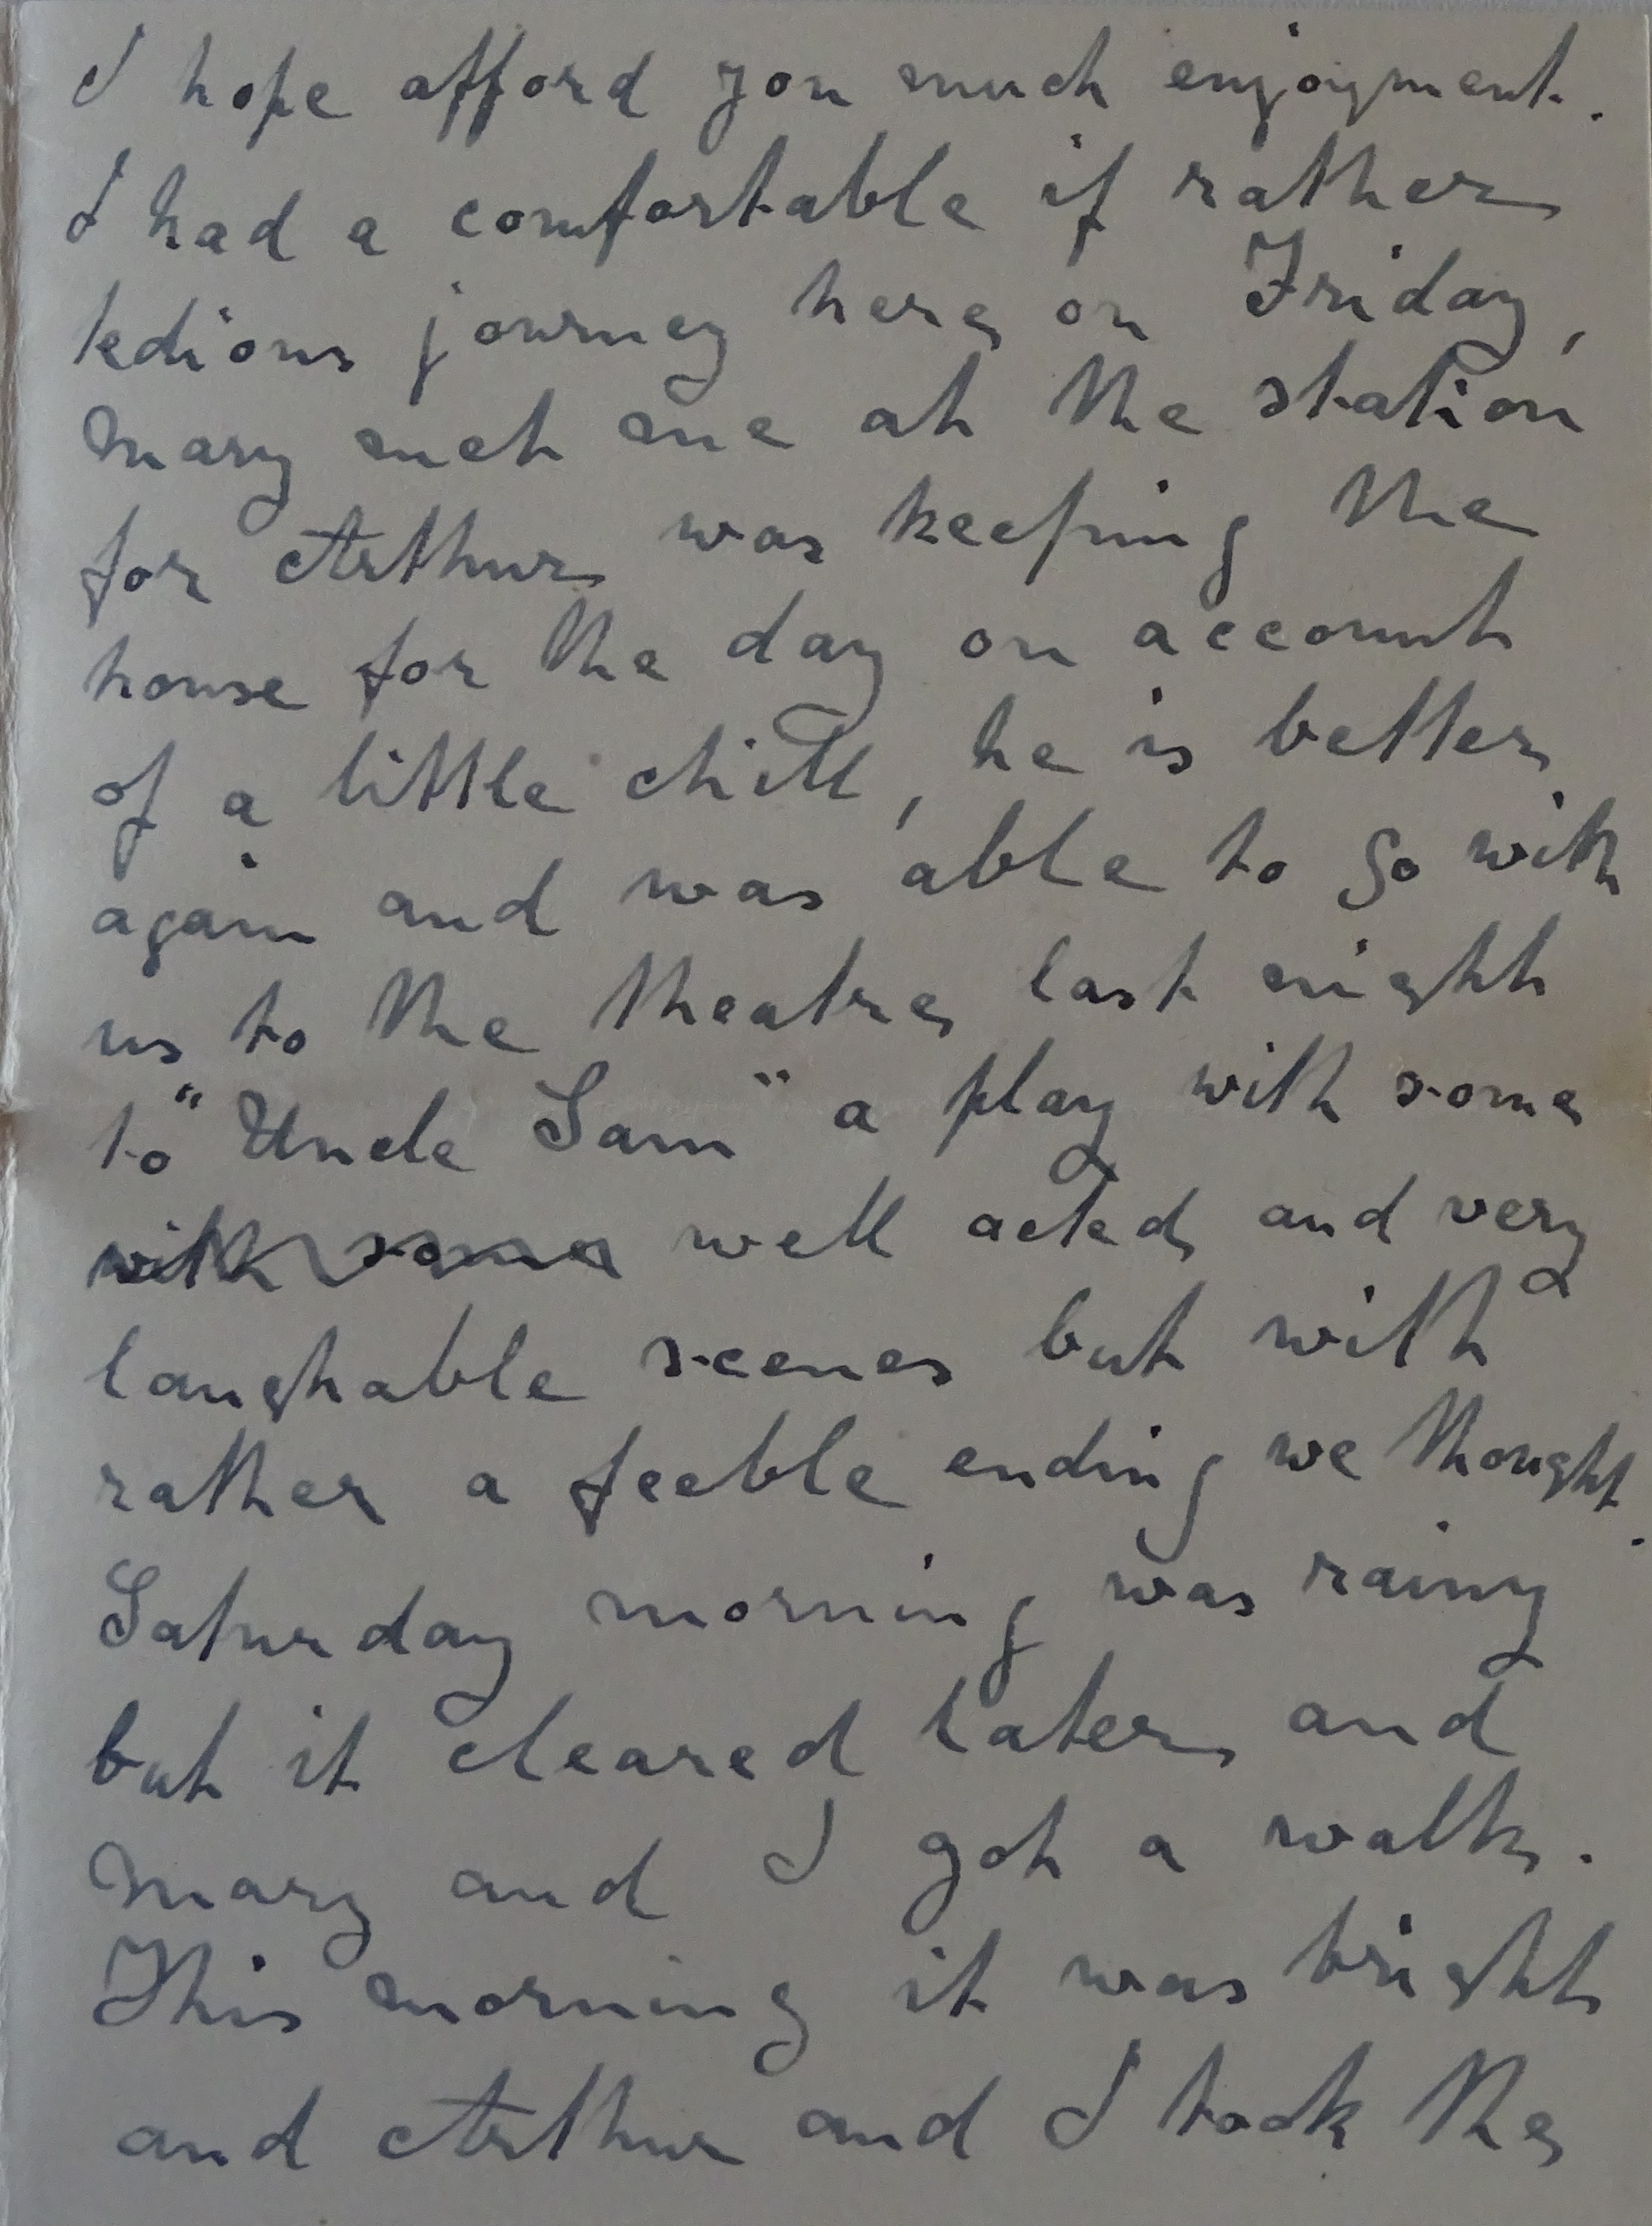 I hope afford you much enjoyment.
I had a comfortable if rather
tedious journey here on Friday,
Mary met me at the station
for Arthur was keeping the
house for the day on account
of a little chill, he is better
again and was able to go with
us to the theatre last night
to "Uncle Sam" a play with some
with some well acted and very
laughable scenes but with
rather a feeble ending we thought.
Saturday morning was rainy
but it cleared later and
Mary and I got a walk.
This morning it was bright
and Arthur and I took the